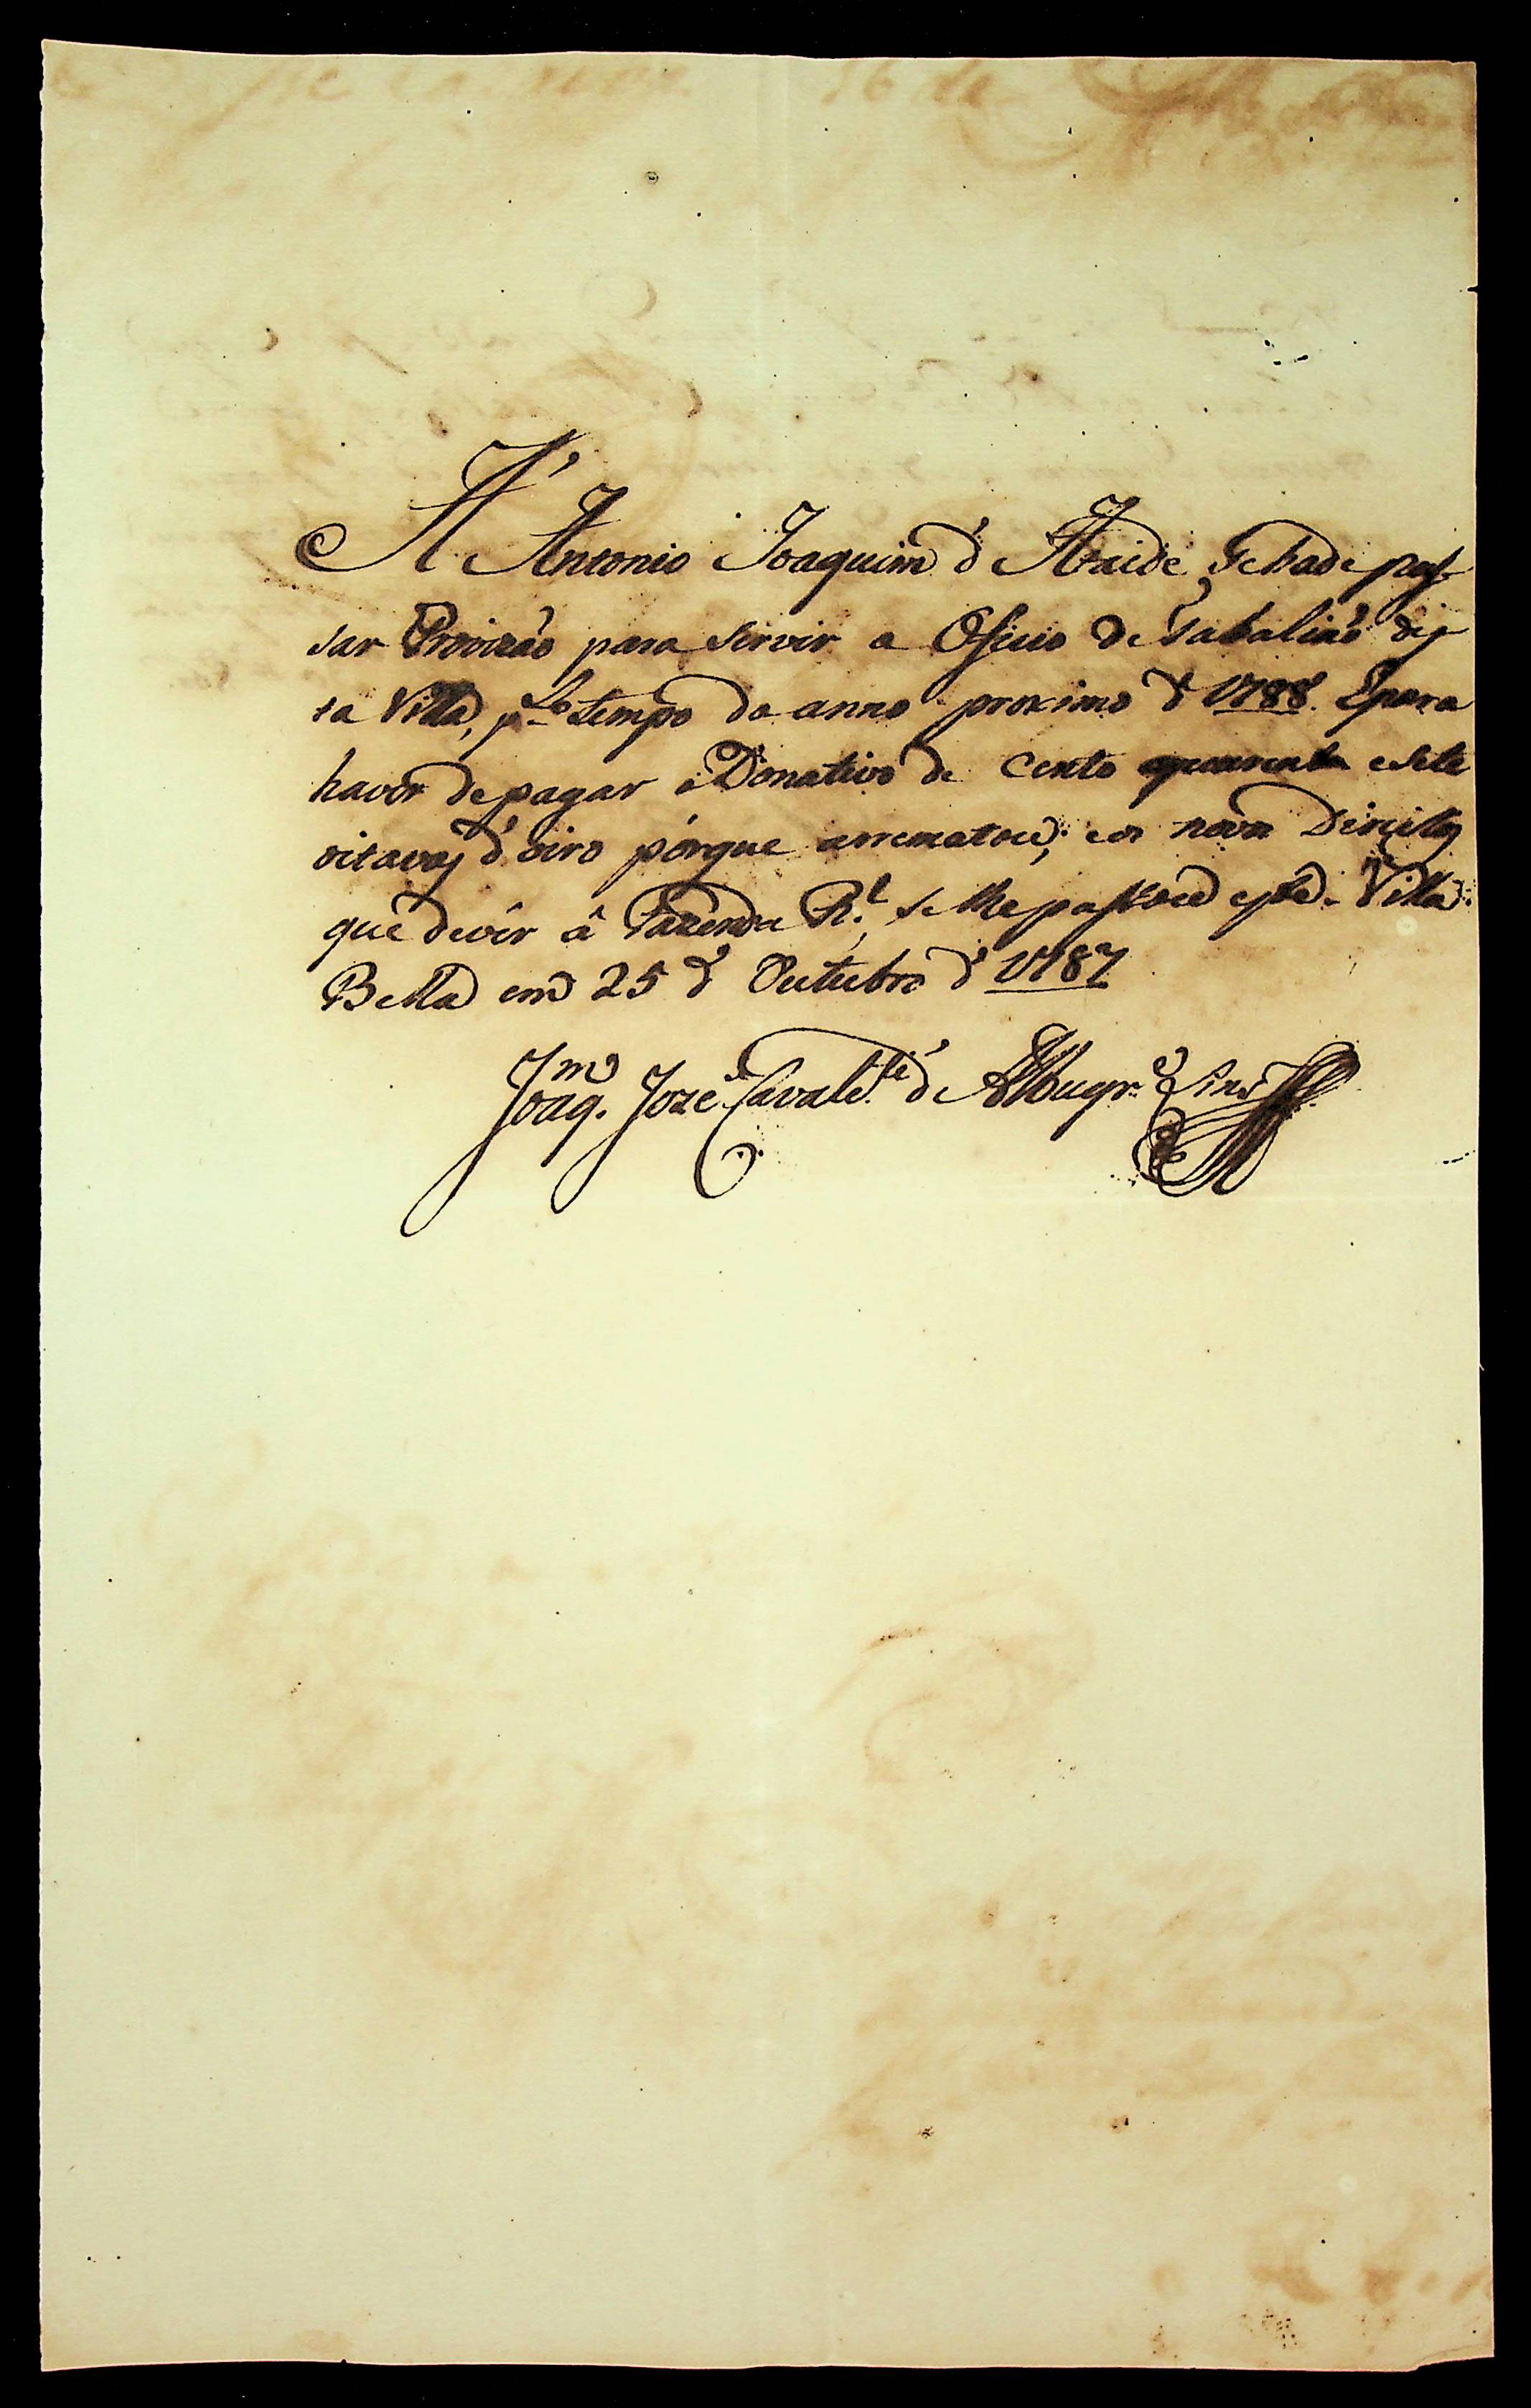 A Antonio Joaquim d' Ataide, Sehade pas-
sar Provizão para servir o Oficio de Tabalião des-
ta Villa, p.lo tempo do anno proximo d' 1788. Epara
haver depagar o Donativo de cento quarenta esete
oitavas d' oiro porque arrematou, eos novos Direitos
que dever â Fazenda R.l, se lhe passou este. Villa
Bella em 25 d' Outubro d' 1787
Joaq.m Jozé Cavalc.te d' Albuqr.e Lins